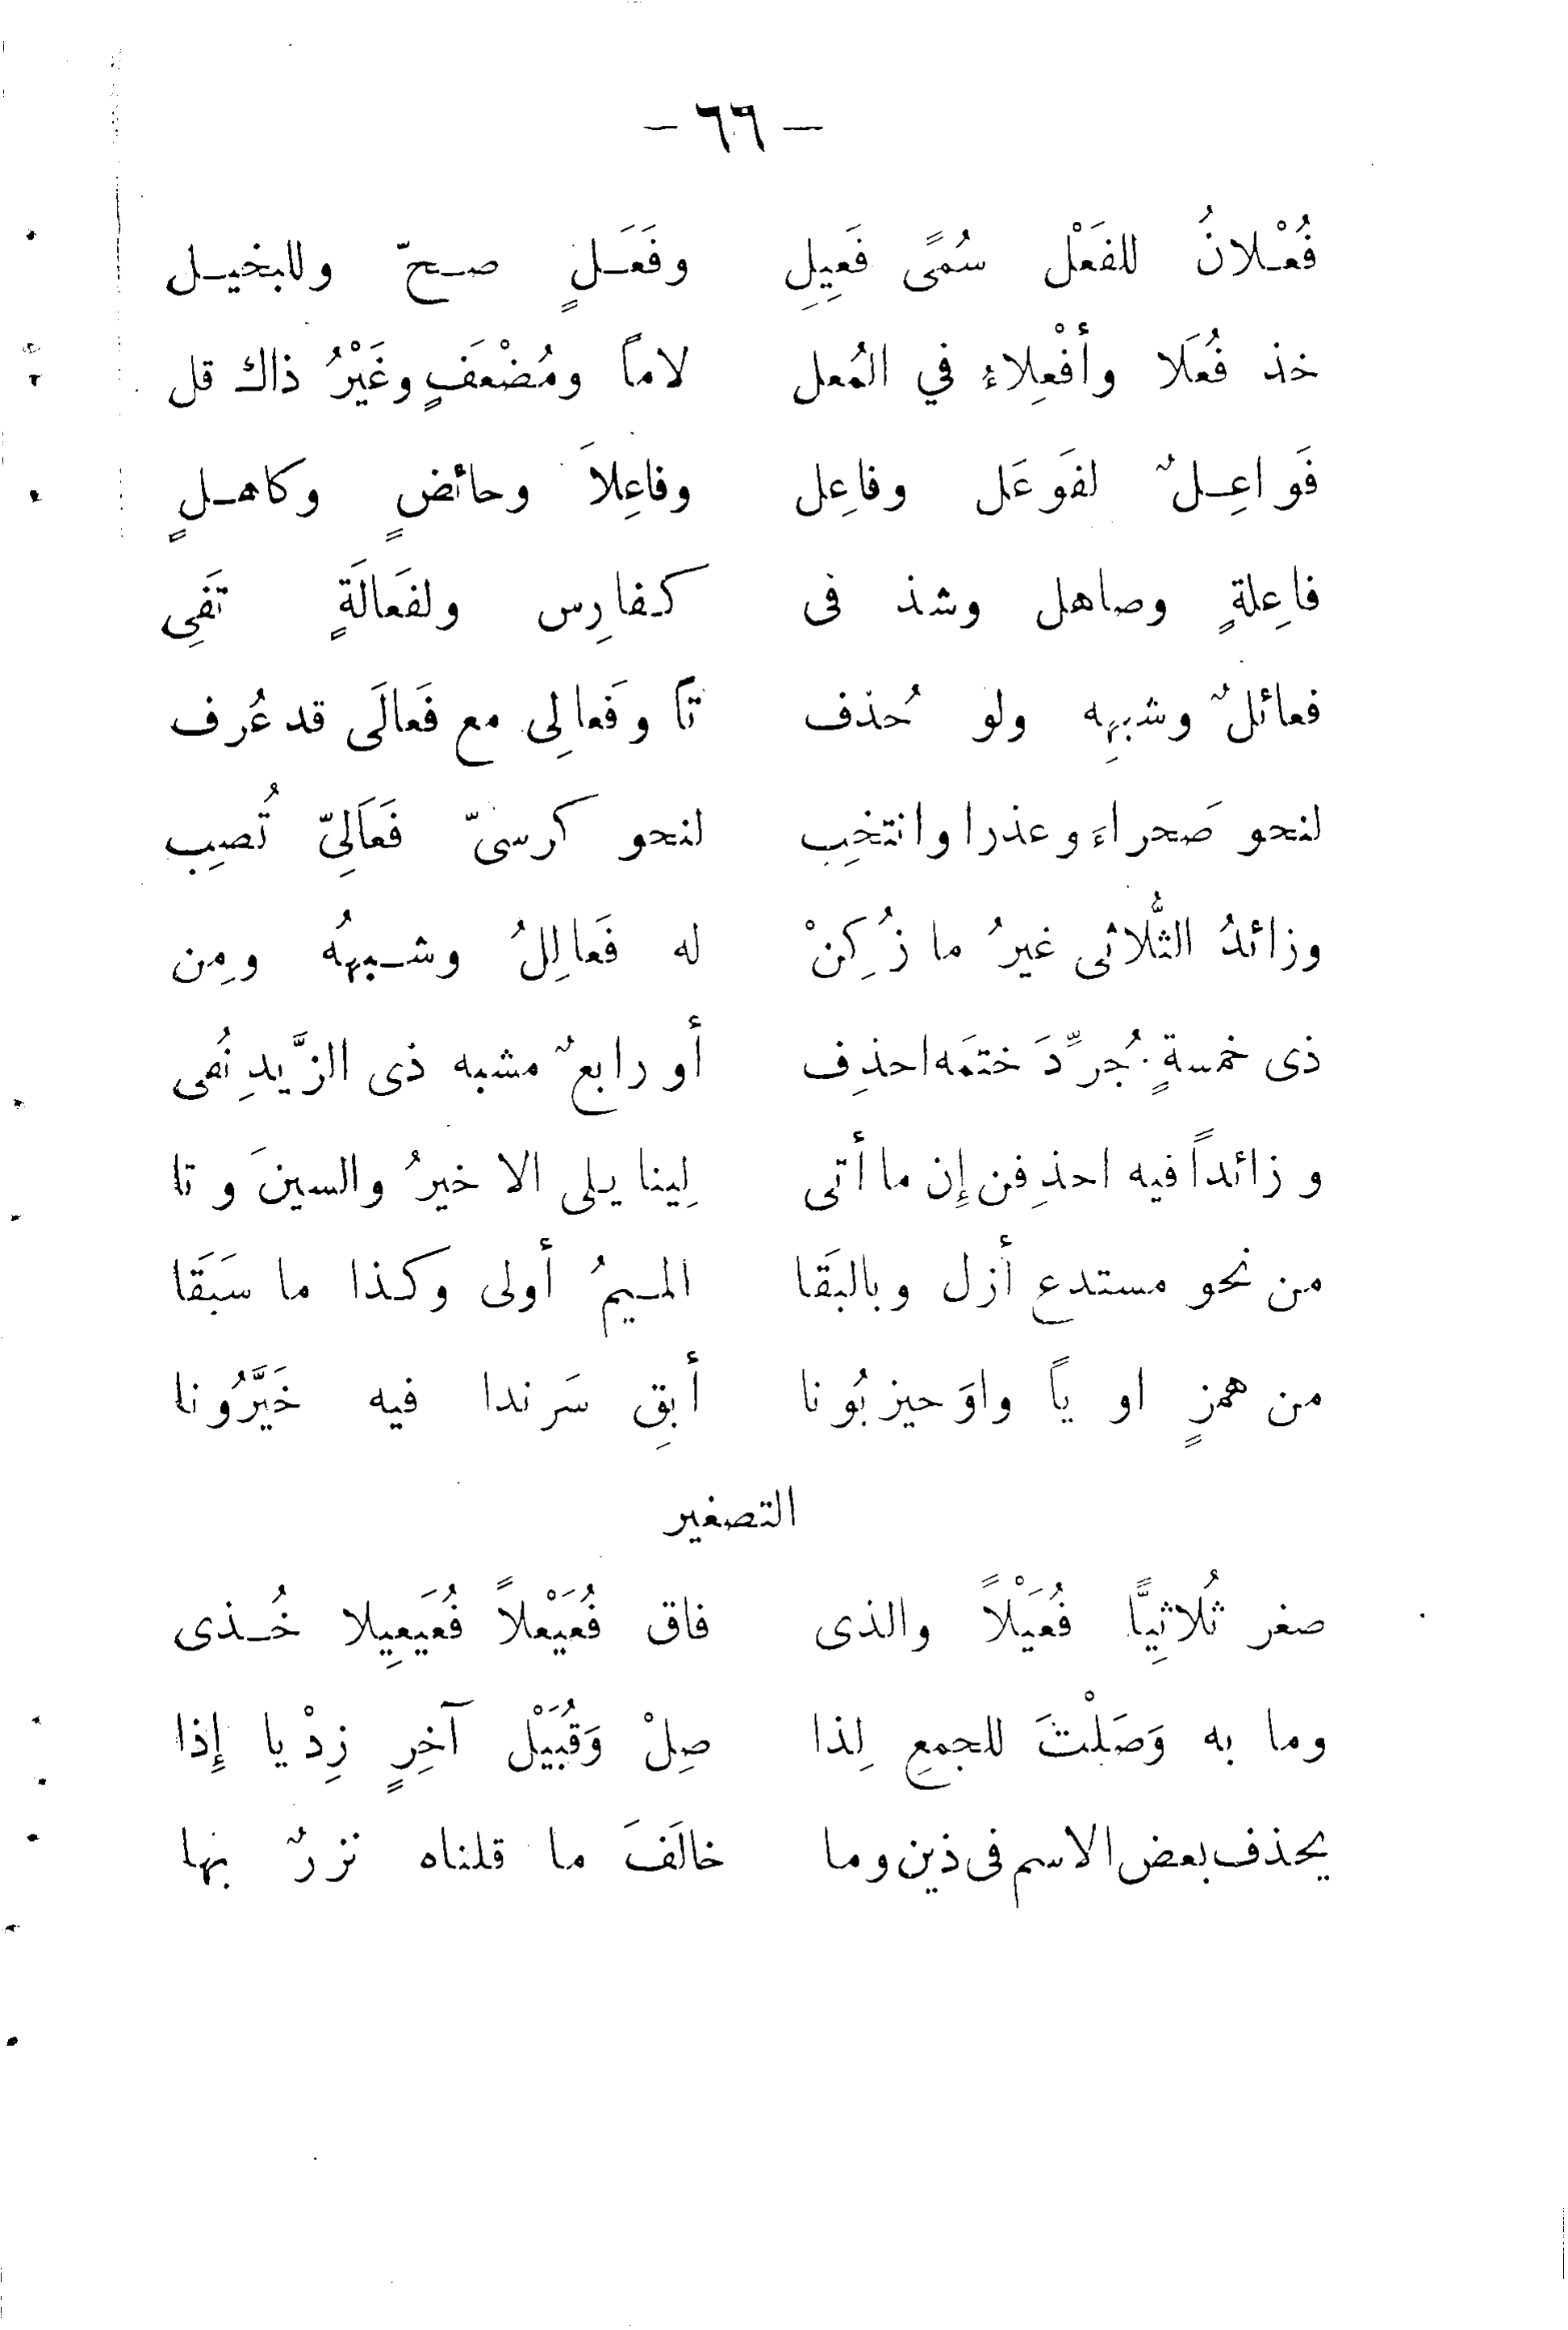 — ٦٦ —
فُعْلانُ للفَعْل سُمًى فَعِيلِ وفَعَلٍ صحّ وللبخيل
خذ فُعَلا وأفْعِلاءُ في المُعل لاماً ومُضْعَفٍ وغَيْرُ ذاك قل
فَواعِلٌ لفَوعَل وفاعِل وفاعِلاَ وحائضٍ وكاهلٍ
فاعِلةٍ وصاهل وشذ فى كفارِس ولفَعالَةٍ تَفِى
فعائلٌ وشبهِه ولو حُذف تاً وفَعالِى مع فَعالَى قد عُرف
لنحو صَحراءَ وعذرا وانتخِب لنحو كرسىّ فَعَالِىّ تُصِيب
وزائدُ الثُّلاثى غيرُ ما زُكِنْ له فَعالِلُ وشبههُ ومِن
ذى خمسةٍ جُرِّدَ ختمَه احذِف أو رابعٌ مشبه ذى الزَّيدِ نُفى
وزائداً فيه احذِفن إن ما أتى لِينا يلى الاخيرُ والسينَ وتا
من نحو مستدع أزل وبالبَقَا الميمُ أولى وكذا ما سَبَقَا
من همزٍ او ياً واوَ حيزبُونا أبقِ سَرندا فيه خَيَّرُونا
التصغير
صغر ثُلاثِيًّا فُعَيْلاً والذى فاق فُعَيْعلاً فُعَيعِيلا خُذى
وما به وَصَلْتَ للجمعِ لِذا صِلْ وَقُبَيْل آخِرٍ زِدْ يا إِذا
يحذف بعض الاسم فى ذين وما خالَفَ ما قلناه نزرٌ بهما